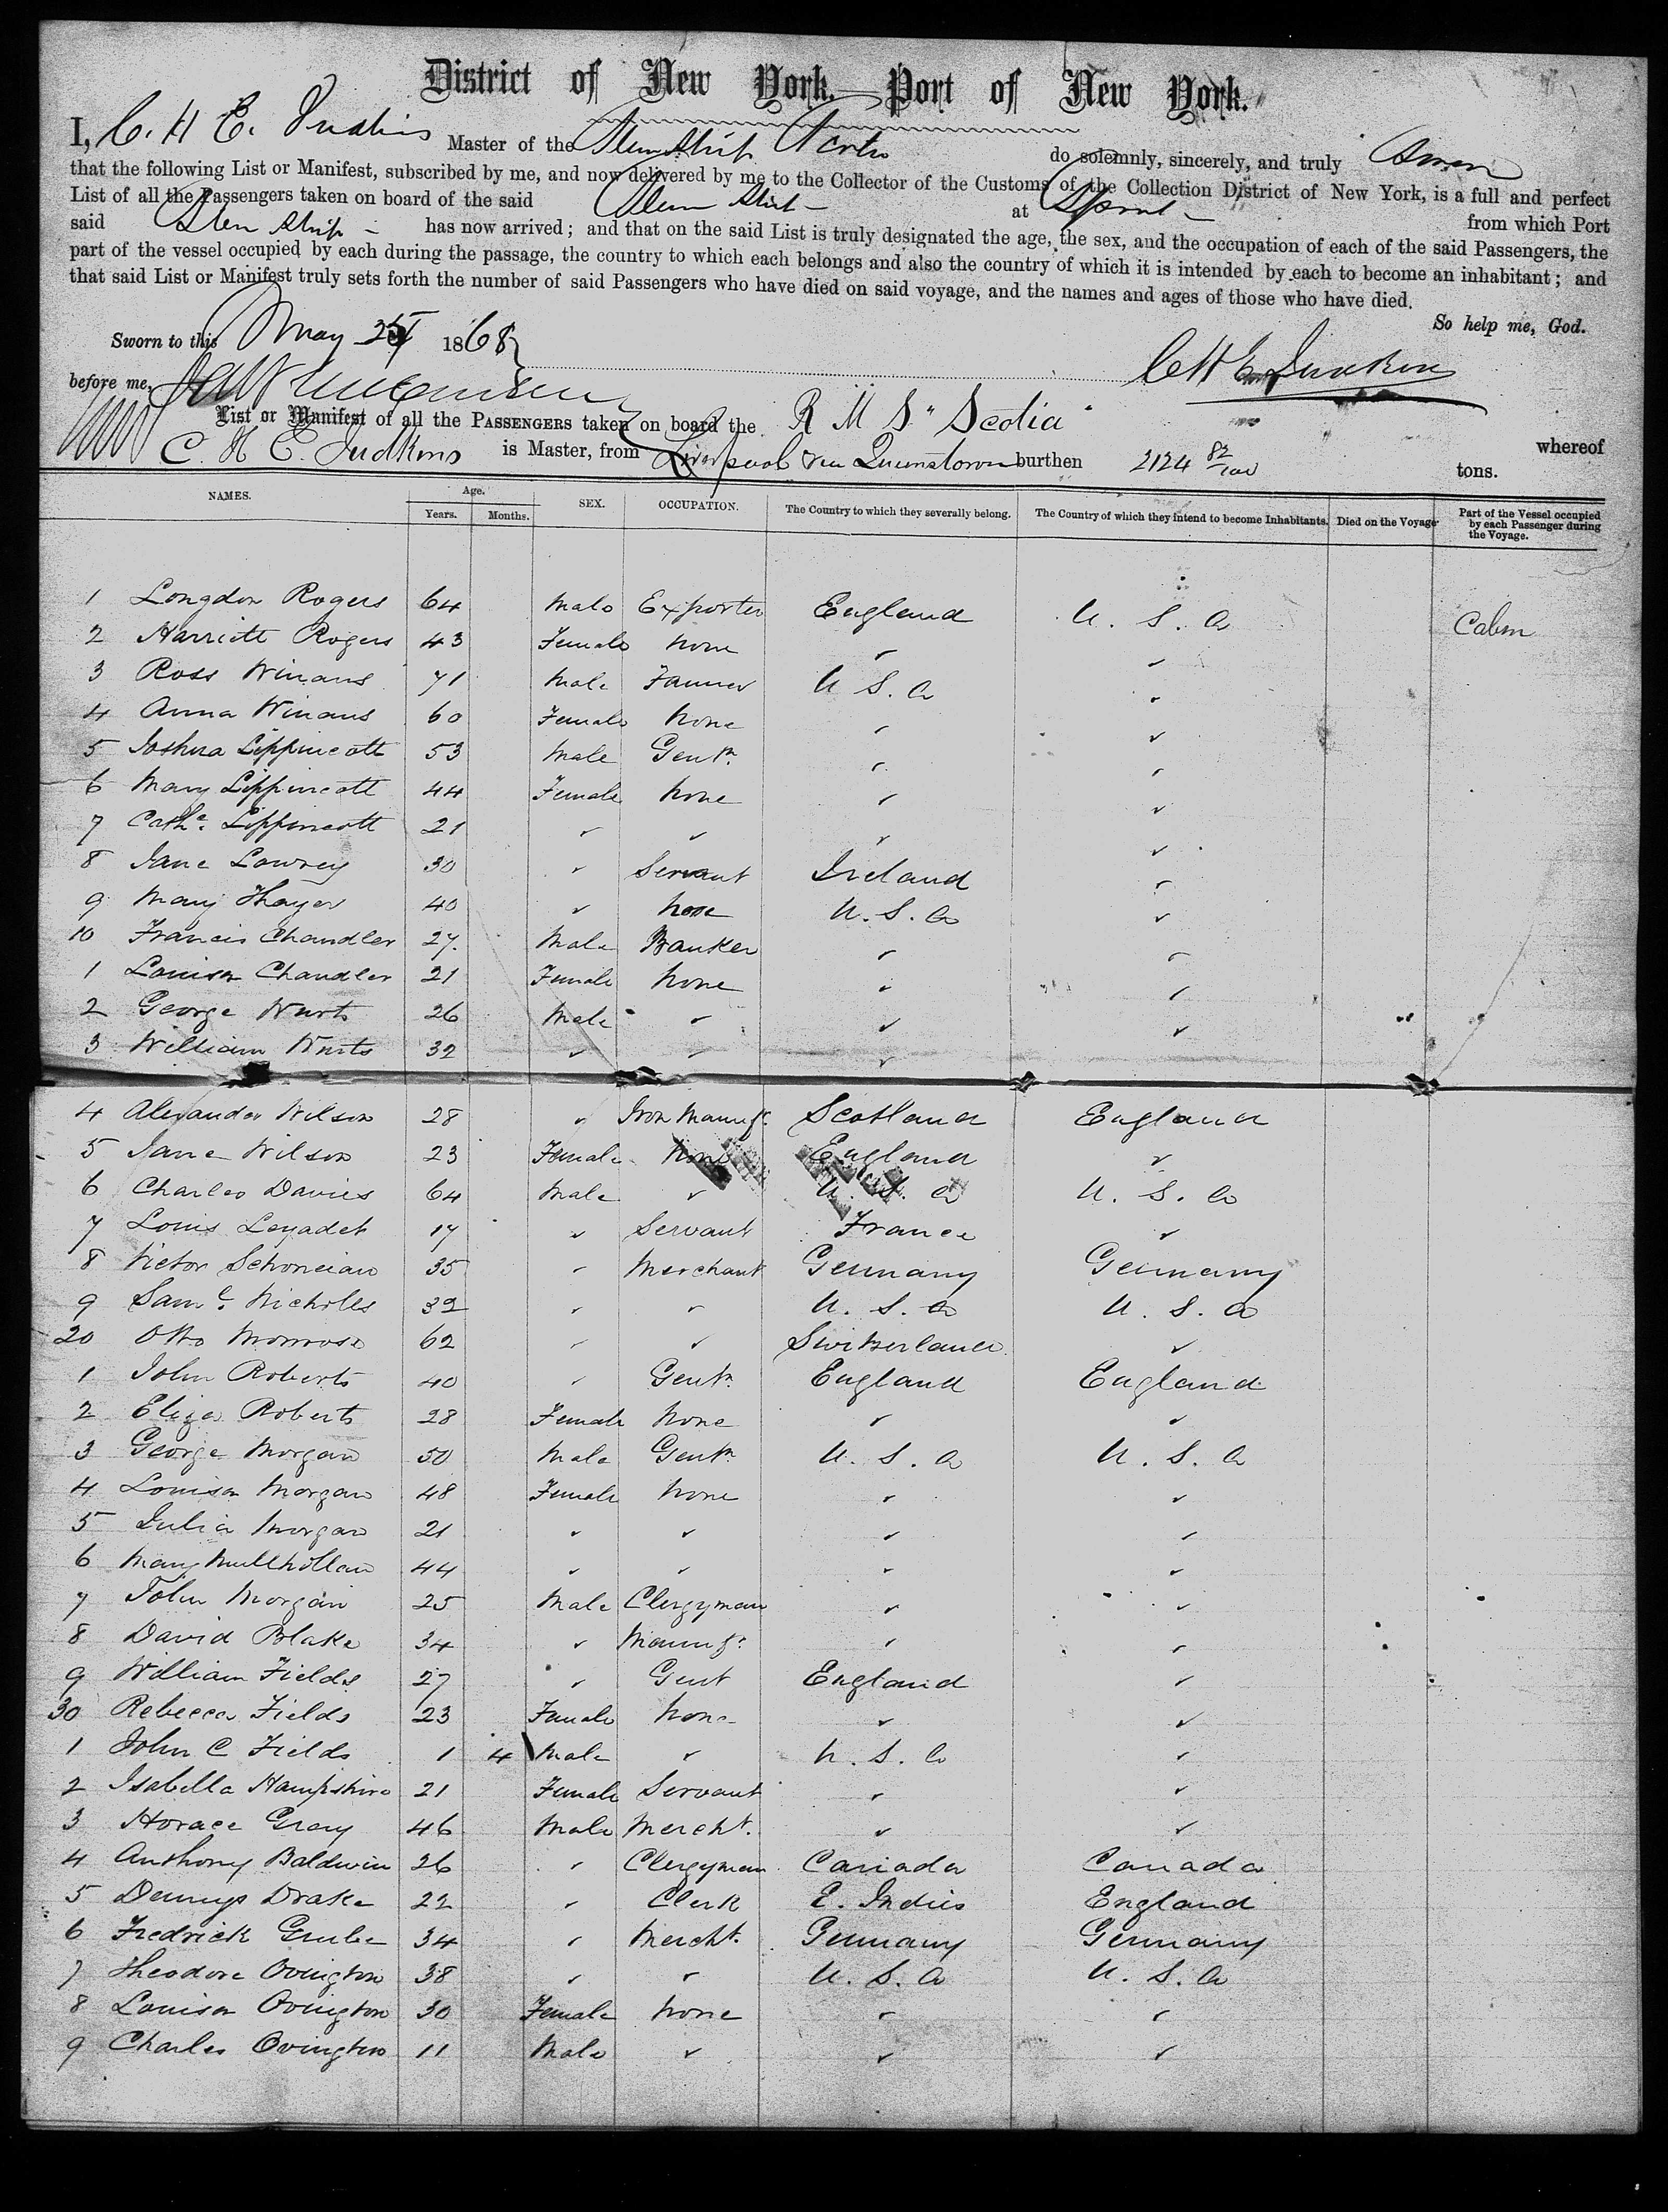 District of New York. Port of New York.
I, C. H. E. Judkins Master of the Steam Ship Scotia do solemnly, sincerely, and truly Swear
that the following List or Manifest, subscribed by me, and now delivered by me to the Collector of the Customs of the Collection District of New York, is a full and perfect
List of all the Passengers taken on board of the said Steam Ship at Lpool from which Port
said Steam Ship has now arrived; and that on the said List is truly designated the age, the sex, and the occupation of each of the said Passengers, the
part of the vessel occupied by each during the passage, the country to which each belongs and also the country of which it is intended by each to become an inhabitant; and
that said List or Manifest truly sets forth the number of said Passengers who have died on said voyage, and the names and ages of those who have died.
So help me, God.
Sworn to this May 1868
before me, C H E Judkins
List or Manifest of all the PASSENGERS taken on board the R M S "Scotia" whereof
C. H. E. Judkins is Master, from Liverpool via Queenstown burthen 2124 82/100 tons.
NAMES. Age. Years. Months. SEX. OCCUPATION. The Country to which they severally belong. The Country of which they intend to become Inhabitants. Died on the Voyage Part of the Vessel occupied by each Passenger during the Voyage.
1 Longdon Rogers 64 Male Exporter England U. S. A Cabin
2 Harriett Rogers 43 Female None " "
3 Ross Winans 71 Male Farmer U S. A "
4 Anna Winans 60 Female None " "
5 Joshua Lippincott 53 Male Gentn. " "
6 Mary Lippincott 44 Female None " "
7 Cathe. Lippincott 21 " " " "
8 Jane Lowrey 30 " Servant Ireland "
9 Mary Thayer 40 " None U. S. A "
10 Francis Chandler 27. Male Banker " "
1 Louisa Chandler 21 Female None " "
2 George Wurts 26 Male " " "
3 William Wurts 32 " " "
4 Alexander Wilson 28 " Iron Manufr. Scotland England
5 Jane Wilson 23 Female None England "
6 Charles Davies 64 Male " U. S. A U. S. A
7 Louis 17 " Servant France "
8 Victor 35 " Merchant Germany Germany
9 Saml. Nicholls 32 " " U. S. A U. S. A
20 Otto 62 " " Switzerland "
1 John Roberts 40 " Gentn. England England
2 Eliza Roberts 28 Female None " "
3 George Morgan 50 Male Gentn U. S. A U. S. A
4 Louisa Morgan 48 Female None " "
5 Julia Morgan 21 " " " "
6 Mary Mullhollan 44 " " " "
7 John Morgan 25 Male Clergyman " "
8 David Blake 34 " Manufr. " "
9 William Fields 27 " Gent England "
30 Rebecca Fields 23 Female None " "
1 John C Fields 1 4 Male " U. S. A "
2 Isabella Hampshire 21 Female Servant " "
3 Horace Gray 46 Male Mercht. " "
4 Anthony Baldwin 26 " Clergyman Canada Canada
5 Dennys Drake 22 " Clerk E. Indies England
6 Fredrick Grube 34 " Mercht. Germany Germany
7 Theodore Ovington 38 " " U. S. A U. S. A
8 Louisa Ovington 30 Female None " "
9 Charles Ovington 11 Male " " "